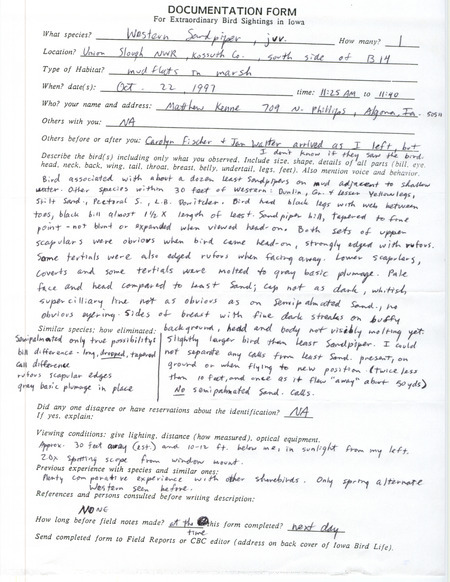 DOCUMENTATION FORM
For Extraordinary Bird Sightings in Iowa
What species? Western Sandpiper, juv. How many? 1
Location? Union Slough NWR, Kossuth Co., south side of B14
Type of Habitat? mudflats in marsh
When? date(s): Oct. 22 1997 time: 11:25 AM to 11:40
Who? your name and address: Matthew Kenne 709 N. Phillips, Algona, Ia. 50511
Others with you: NA
Others before or after you: Carolyn Fischer & Jan Walter arrived as I left, but
I don't know if they saw the bird.
Describe the bird(s) including only what you observed. Include size, shape, details of all parts (bill, eye,
head, neck, back, wing, tail, throat, breast, belly, undertail, legs, feet). Also mention voice and behavior.
Bird associated with about a dozen least sandpipers on mud adjacent to shallow
water. Other species within 30 feet of Western: Dunlin, Gr. & lesser Yellowlegs,
Stilt Sand., Pectoral S., L.B. Dowitcher. Bird had black legs with web between
toes, black bill almost 1½ x length of least. Sandpiper bill, tapered to fine
point - not blunt or expanded when viewed head-on. Both sets of upper
scapulars were obvious when bird came head-on, strongly edged with rufous.
Some tertials were also edged rufous when facing away. Lower scapulars,
coverts and some tertials were molted to gray basic plumage. Pale
face and head compared to Least Sand; cap not as dark, whitish
superciliary line not as obvious as on Semipalmated Sand., no
obvious eyering. Sides of breast with fine dark streaks on buffy
background, head and body not visibly molting yet.
Similar species; how eliminated:
Semipalmated only true possibility:
bill difference - long, drooped, tapered
call difference
rufous scapular edges
gray basic plumage in place
Slightly larger bird than least Sandpiper. I could
not separate any calls from least Sand. present, on
ground or when flying to new position (twice less
than 10 feet, and once as it flew "away" about 50 yds)
No semipalmated Sand. calls.
Did any one disagree or have reservations about the identification? NA
If yes, explain:
Viewing conditions: give lighting, distance (how measured), optical equipment.
Approx. 30 feet away (est.) and 10-12 ft. below me, in sunlight from my left.
20x spotting scope from window mount.
Previous experience with species and similar ones:
Plenty comparative experience with other shorebirds. Only spring alternate
Western seen before.
References and persons consulted before writing description:
NONE
How long before field notes made? at the time this form completed? next day
Send completed form to Field Reports or CBC editor (address on back cover of Iowa Bird Life).